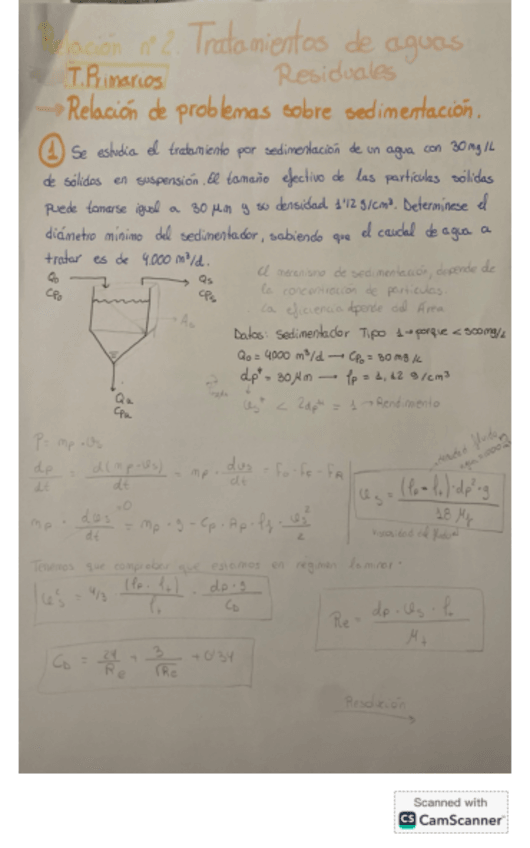 Relación nº 2. Tratamientos de aguas
Residuales
T. Primarios
→ Relación de problemas sobre sedimentación.
① Se estudia el tratamiento por sedimentación de un agua con 30 mg/L
de sólidos en suspensión. El tamaño efectivo de las partículas sólidas
puede tomarse igual a 30 μm y su densidad 1'12 g/cm³. Determínese el
diámetro mínimo del sedimentador, sabiendo que el caudal de agua a
tratar es de 4.000 m³/d.
Q₀
Cp₀
Qs
Cps
Qu
Cpu
El mecanismo de sedimentación, depende de
la concentración de partículas.
La eficiencia depende del Área
Datos: Sedimentador Tipo 1 → porque < 500mg/L
Q₀ = 4000 m³/d → Cp₀ = 30 mg/L
dp* = 30 μm → ρp = 1,12 g/cm³
= 1 → Rendimiento
P = mp · vs
dp/dt = d(mp · vs)/dt = mp · dvs/dt = FG - FE - FR
mp · dvs/dt = mp · g - Cp · Ap · ρf · vs²/2
vs = (ρp - ρf) · dp² · g / 18 μf
Tenemos que comprobar que estamos en régimen laminar.
vs² = 4/3 · (ρp - ρf)/ρf · dp · g/CD
Re = dp · vs · ρf / μf
CD = 24/Re + 3/√Re + 0'34
Resolución
Scanned with
CS CamScanner